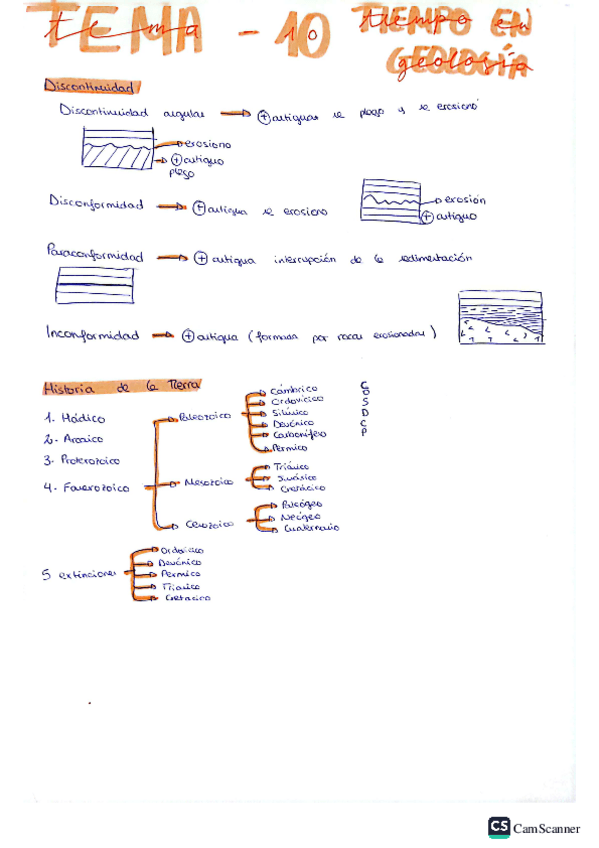 TEMA - 10 TIEMPO EN
tema tiempo en
GEOLOGÍA
geología
Discontinuidad
Discontinuidad angular → + antiguas se plega y se erosionó
erosiono
+ antiguo
plego
Disconformidad → + antigua se erosiono
erosión
+ antiguo
Paraconformidad → + antigua interrupción de la sedimentación
Inconformidad → + antigua (formada por rocas erosionadas)
Historia de la Tierra
1. Hádico
2. Arcaico
3. Proterozoico
4. Fanerozoico
Paleozoico
Cámbrico C
Ordovícico O
Silúrico S
Devónico D
Carbonífero C
Pérmico P
Mesozoico
Triásico
Jurásico
Cretácico
Cenozoico
Paleógeo
Neógeo
Cuaternario
5 extinciones
Ordovícico
Devónico
Pérmico
Triásico
Cretácico
CS CamScanner